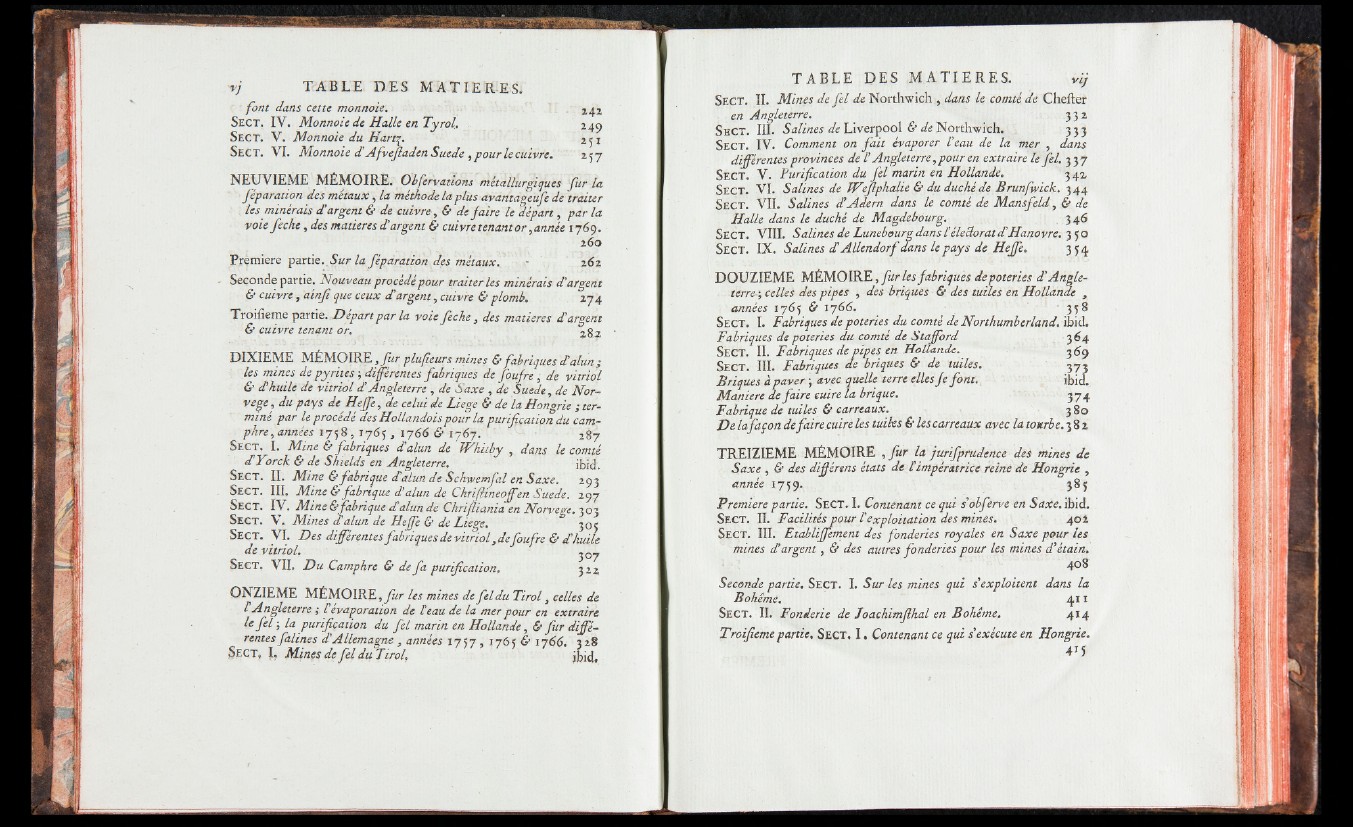 vj TABLE DES MATIERES.
ſont dans cette monnoie. 242
SECT. IV. Monnoie de Halle en Tyrol. 249
SECT. V. Monnoie du Hartz. 251
SECT. VI. Monnoie d'Afveſtaden Suede, pour le cuivre. 257
NEUVIEME MÉMOIRE. Obſervations métallurgiques ſur la
ſéparation des métaux, la méthode la plus avantageuſe de traiter
les minérais d'argent & de cuivre, & de faire le départ, par la
voie ſeche, des matieres d'argent & cuivre tenant or, année 1769.
260
Premiere partie. Sur la ſéparation des métaux. 262
Seconde partie. Nouveau procédé pour traiter les minérais d'argent
& cuivre, ainſi que ceux d'argent, cuivre & plomb. 274
Troiſieme partie. Départ par la voie ſeche, des matieres d'argent
& cuivre tenant or. 282
DIXIEME MÉMOIRE, ſur pluſieurs mines & fabriques d'alun;
les mines de pyrites; différentes fabriques de ſoufre, de vitriol
& d'huile de vitriol d'Angleterre, de Saxe, de Suede, de Nor-
vege, du pays de Heſſe, de celui de Liege & de la Hongrie; ter-
miné par le procédé des Hollandois pour la purification du cam-
phre, années 1758, 1765, 1766 & 1767. 287
SECT. I. Mine & fabriques d'alun de Whitby, dans le comté
d'Yorck & de Shields en Angleterre. ibid.
SECT. II. Mine & fabrique d'alun de Schwemſal en Saxe. 293
SECT. III. Mine & fabrique d'alun de Chriſtineoff en Suede. 297
SECT. IV. Mine & fabrique d'alun de Chriſtiania en Norvege. 303
SECT. V. Mines d'alun de Heſſe & de Liege. 305
SECT. VI. Des différentes fabriques de vitriol, de ſoufre & d'huile
de vitriol. 307
SECT. VII. Du Camphre & de ſa purification. 322
ONZIEME MÉMOIRE, ſur les mines de ſel du Tirol, celles de
l'Angleterre; l'évaporation de l'eau de la mer pour en extraire
le ſel; la purification du ſel marin en Hollande, & ſur diffé-
rentes ſalines d'Allemagne, années 1757, 1765 & 1766. 328
SECT. I. Mines de ſel du Tirol. ibid.
TABLE DES MATIERES. vij
SECT. II. Mines de ſel de Northwich, dans le comté de Cheſter
en Angleterre. 332
SECT. III. Salines de Liverpool & de Northwich. 333
SECT. IV. Comment on fait évaporer l'eau de la mer, dans
différentes provinces de l'Angleterre, pour en extraire le ſel. 337
SECT. V. Purification du ſel marin en Hollande. 342
SECT. VI. Salines de Weſtphalie & du duché de Brunſwick. 344
SECT. VII. Salines d'Adern dans le comté de Mansfeld, & de
Halle dans le duché de Magdebourg. 346
SECT. VIII. Salines de Lunebourg dans l'électorat d'Hanovre. 350
SECT. IX. Salines d'Allendorf dans le pays de Heſſe. 354
DOUZIEME MÉMOIRE, ſur les fabriques de poteries d'Angle-
terre; celles des pipes, des briques & des tuiles en Hollande,
années 1765 & 1766. 358
SECT. I. Fabriques de poteries du comté de Northumberland. ibid.
Fabriques de poteries du comté de Stafford 364
SECT. II. Fabriques de pipes en Hollande. 369
SECT. III. Fabriques de briques & de tuiles. 373
Briques à paver; avec quelle terre elles ſe font. ibid.
Maniere de faire cuire la brique. 374
Fabrique de tuiles & carreaux. 380
De la façon de faire cuire les tuiles & les carreaux avec la tourbe. 382
TREIZIEME MÉMOIRE, ſur la juriſprudence des mines de
Saxe, & des différens états de l'impératrice reine de Hongrie,
année 1759. 385
Premiere partie. SECT. I. Contenant ce qui s'obſerve en Saxe. ibid.
SECT. II. Facilités pour l'exploitation des mines. 402
SECT. III. Etabliſſement des fonderies royales en Saxe pour les
mines d'argent, & des autres fonderies pour les mines d'étain.
408
Seconde partie. SECT. I. Sur les mines qui s'exploitent dans la
Bohéme. 411
SECT. II. Fonderie de Joachimſthal en Bohéme. 414
Troiſieme partie. SECT. I. Contenant ce qui s'exécute en Hongrie.
415